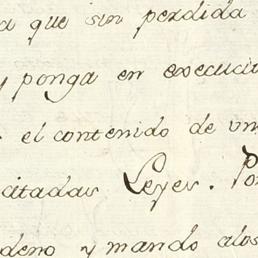 a que sin perdida
y ponga en execuci
el contenido de un
citadas Leyes. Po
deno y mando alos